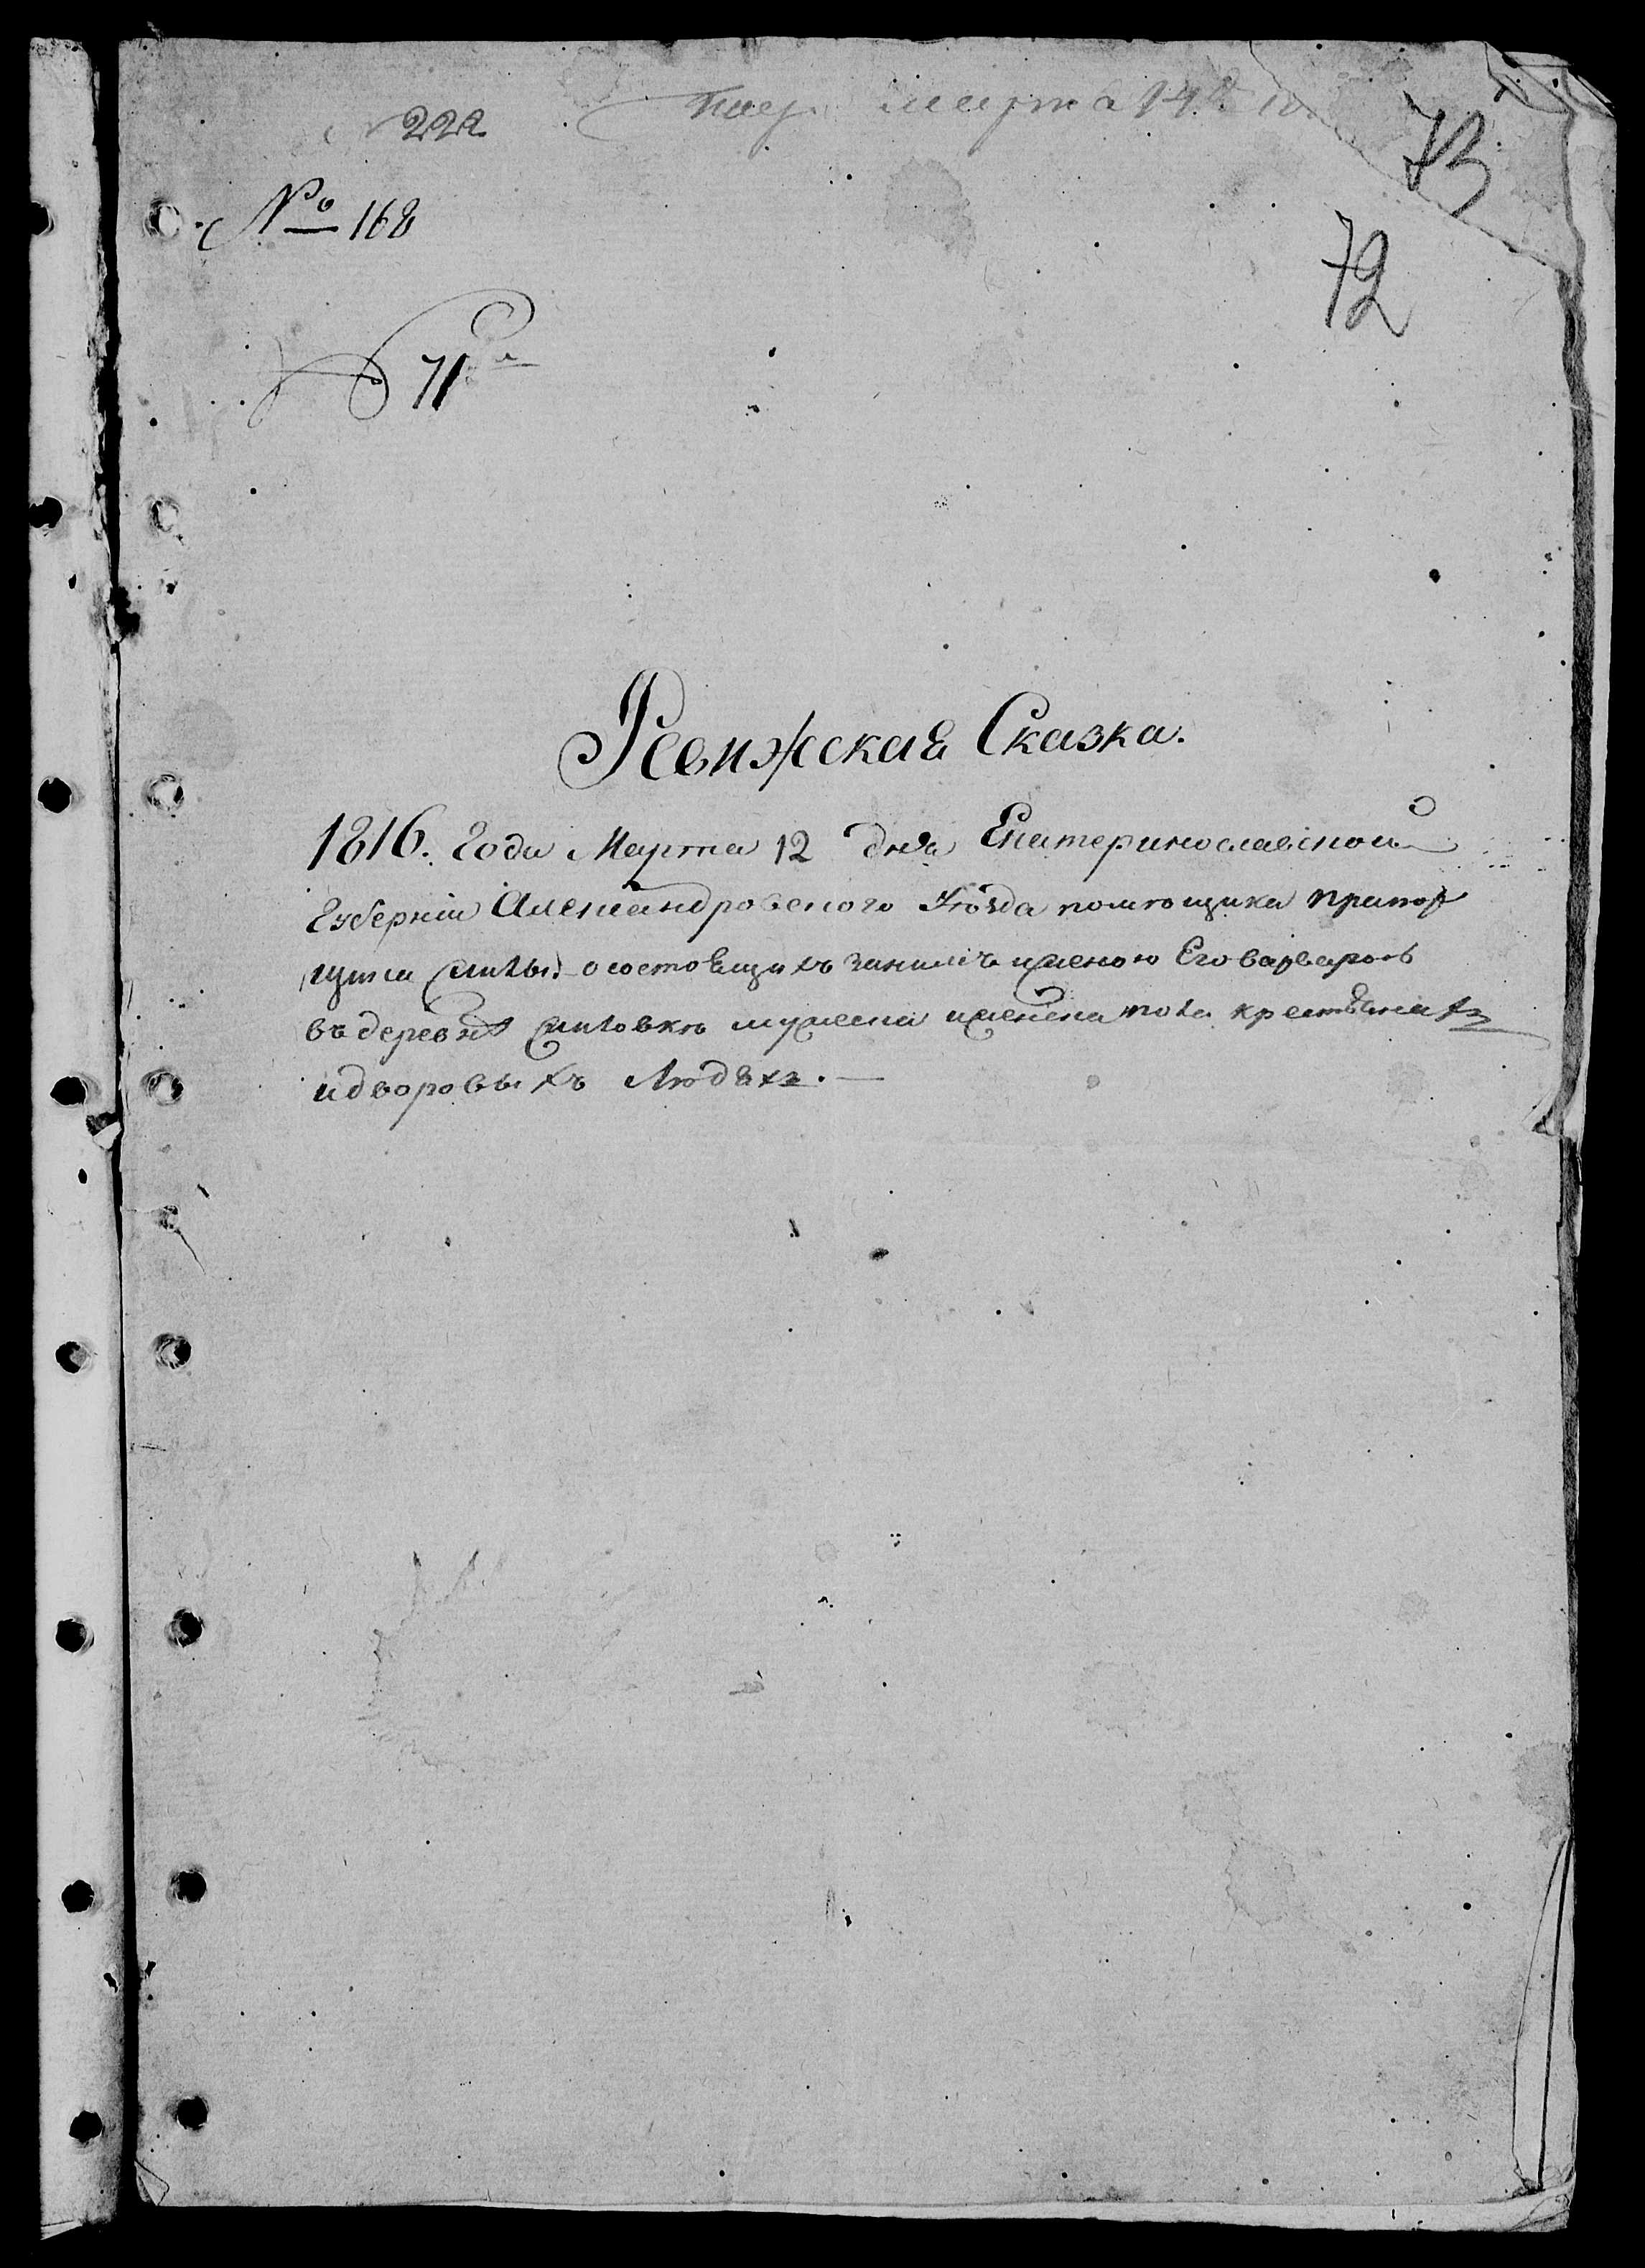 222
марта 14
73
№ 168
72
71
Ревижская Сказка.
1816. Года Марта 12 дня Екатеринославской
Губерніи Александровского Уѣзда помѣщика прапор
щика о состоящихъ за нимъ и женою Его варварою
въ деревнѣ мужеска и женска пола крестьянахъ
и дворовыхъ Людяхъ. —